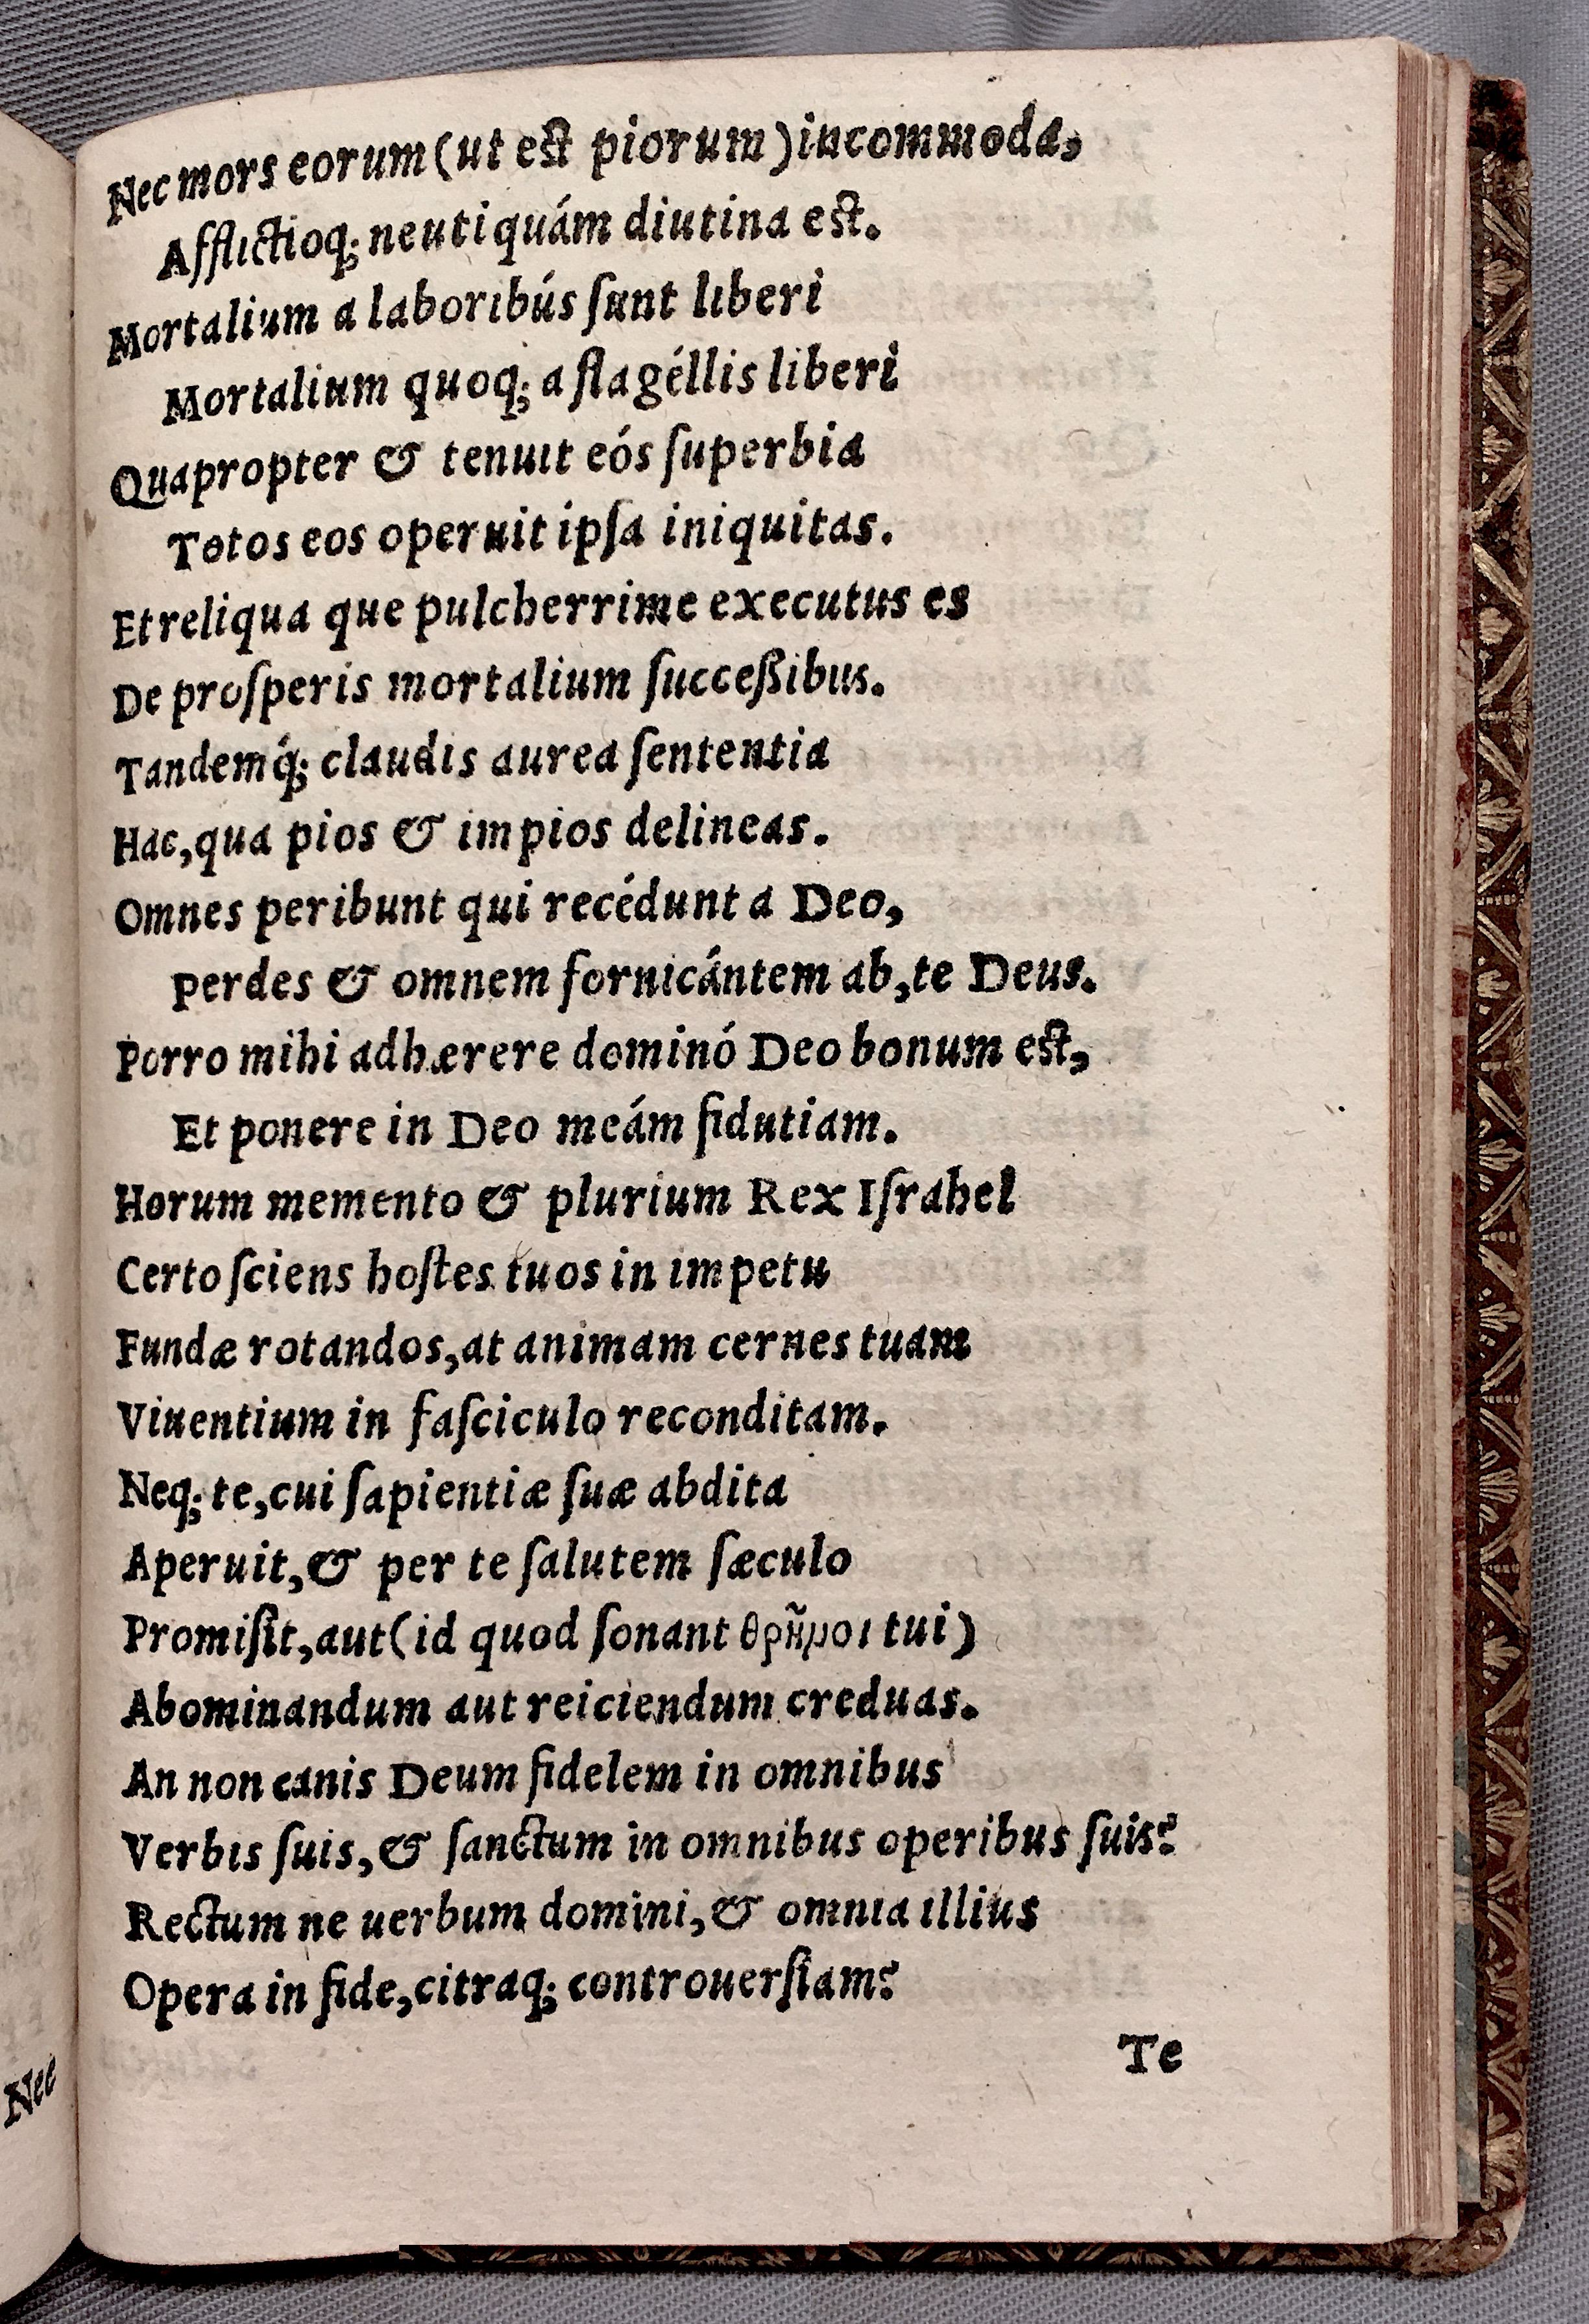 Nec mors eorum (ut est piorum) incommoda,
Afflictioq; neutiquám diutina est.
Mortalium a laboribús ſunt liberi
Mortalium quoq; a flagéllis liberi
Quapropter & tenuit eós ſuperbia
Totos eos operuit ipſa iniquitas.
Et reliqua que pulcherrime executus es
De proſperis mortalium ſucceßibus.
Tandemq́; claudis aurea ſententia
Hac, qua pios & impios delineas.
Omnes peribunt qui recédunt a Deo,
perdes & omnem fornicántem ab, te Deus.
Porro mihi adhærere dominó Deo bonum est,
Et ponere in Deo meám fidutiam.
Horum memento & plurium Rex Iſrahel
Certo ſciens hoſtes tuos in impetu
Fundæ rotandos, at animam cernes tuam
Viuentium in faſciculo reconditam.
Neq; te, cui ſapientiæ ſuæ abdita
Aperuit, & per te ſalutem ſæculo
Promiſit, aut (id quod ſonant θρῆμοι tui)
Abominandum aut reiciendum creduas.
An non canis Deum fidelem in omnibus
Verbis ſuis, & ſanctum in omnibus operibus ſuis?
Rectum ne uerbum domini, & omnia illius
Opera in fide, citraq; controuerſiam?
Te
Nec